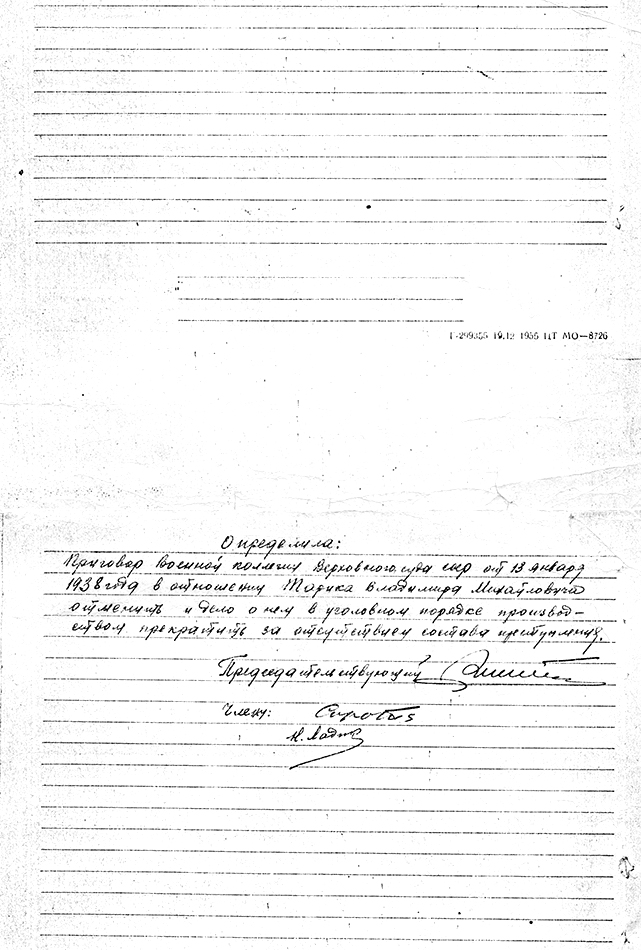 Г-299355 19.12 1955 ЦТ МО—8726
Определила:
Приговор Военной коллегии Верховного суда СССР от 13 января
1938 года в отношении Тарика Владимира Михайловича
отменить и дело о нем в уголовном порядке производ-
ством прекратить за отсутствием состава преступления.
Председательствующий
Члены: